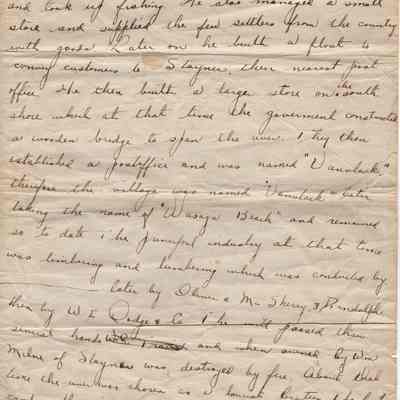 and took up fishing. He also managed a small
store and supplied the few settlers from the country
with goods. Later on he built a float to
convey customers to Stayner, their nearest post
office. He then built a larger store on the south
shore which at that time the goverment constructed
a wooden bridge to span the river. They then
established a postoffice and was named "Vanvlack,"
therefore the village was named "Vanvlack" later
taking the name of "Wasaga Beach" and remained
so to date. The principal industry at that time
was lumbering and lumbering which was conducted by
later by Oliver & McSherry & Randolphe
then by W E Dodge & Co The mill passed thro
several hands and when owned by Wm
Milne of Stayner was destroyed by fire. About
time the river was chosen as a tourist